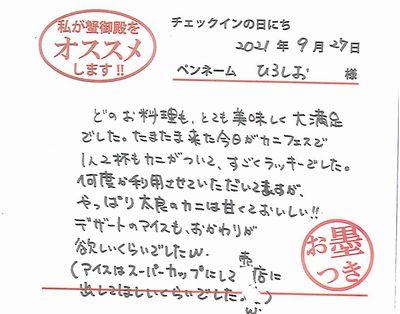 私が蟹御殿を
オススメ
します!!
チェックインの日にち
2021 年 9 月 27 日
ペンネーム ひろしお 様
どのお料理も、とても美味しく大満足
でした。たまたま来た今日がカニフェスで
1人2杯もカニがついて、すごくラッキーでした。
何度か利用させていただいてますが、
やっぱり太良のカニは甘くておいしい!!
デザートのアイスも、おかわりが
欲しいくらいでしたw.
(アイスはスーパーカップにして売店に
出してほしいくらいでした。
w.
お墨
つき